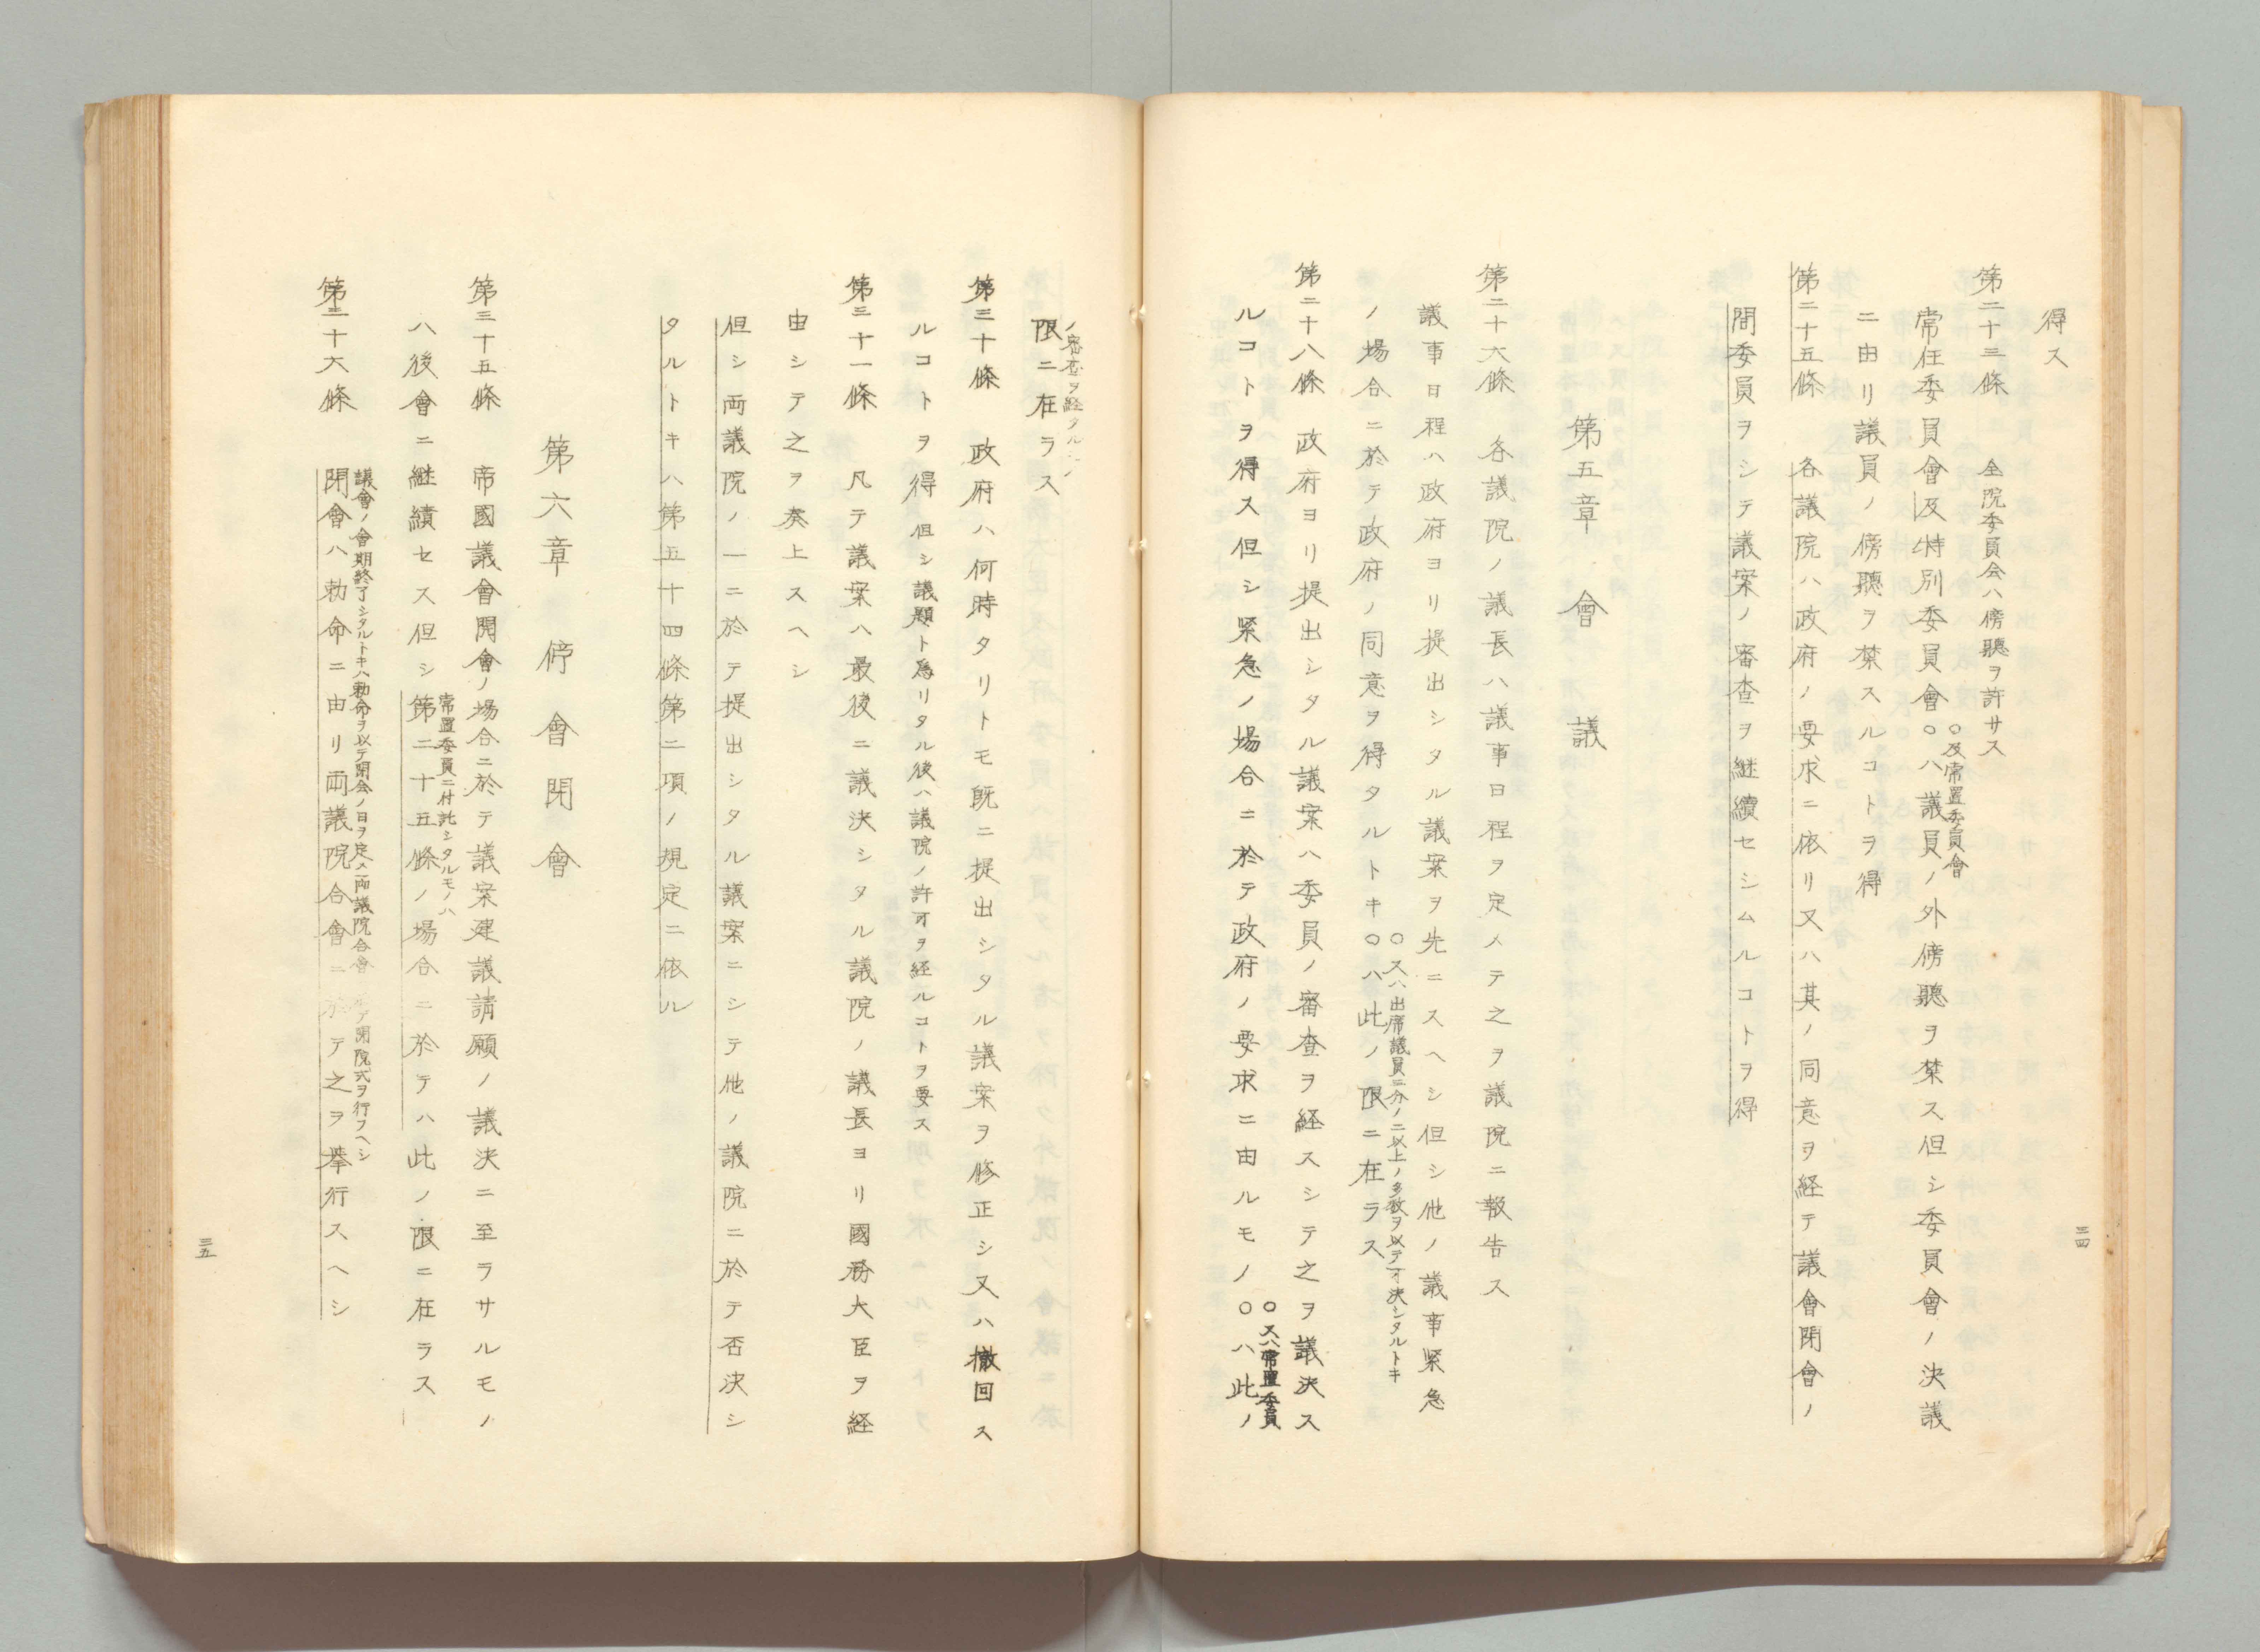 得ス
第二十三條　全院委員会ハ傍聽ヲ許サス
○及常置委員會
常任委員會及特別委員會○ハ議員ノ外傍聽ヲ禁ス但シ委員會ノ決議
ニ由リ議員ノ傍聽ヲ禁スルコトヲ得
第二十五條　各議院ハ政府ノ要求ニ依リ又ハ其ノ同意ヲ経テ議會閉會ノ
間委員ヲシテ議案ノ審査ヲ継續セシムルコトヲ得
第五章　會議
第二十六條　各議院ノ議長ハ議事日程ヲ定メテ之ヲ議院ニ報告ス
議事日程ハ政府ヨリ提出シタル議案ヲ先ニスヘシ但シ他ノ議事緊急
○又ハ出席議員三分ノ二以上ノ多数ヲ以テ可決シタルトキ
ノ場合ニ於テ政府ノ同意ヲ得タルトキ○ハ此ノ限ニ在ラス
第二十八條　政府ヨリ提出シタル議案ハ委員ノ審査ヲ経スシテ之ヲ議決ス
○又ハ常置委員
ルコトヲ得ス但シ緊急ノ場合ニ於テ政府ノ要求ニ由ルモノ○ハ此ノ
三四
ノ審査ヲ経タルモノ
限ニ在ラス
第三十條　政府ハ何時タリトモ既ニ提出シタル議案ヲ修正シ又ハ撤回ス
ルコトヲ得但シ議題ト為リタル後ハ議院ノ許可ヲ経ルコトヲ要ス
第三十一條　凡テ議案ハ最後ニ議決シタル議院ノ議長ヨリ國務大臣ヲ経
由シテ之ヲ奏上スヘシ
但シ両議院ノ一ニ於テ提出シタル議案ニシテ他ノ議院ニ於テ否決シ
タルトキハ第五十四條第二項ノ規定ニ依ル
第六章　停會閉會
第三十五條　帝國議會閉會ノ場合ニ於テ議案建議請願ノ議決ニ至ラサルモノ
常置委員ニ付託シタルモノハ
ハ後會ニ継續セス但シ第二十五條ノ場合ニ於テハ此ノ限ニ在ラス
議會ノ會期終了シタルトキハ勅命ヲ以テ閉会ノ日ヲ定メ両議院合會 閉院式ヲ行フヘシ
第三十六條　閉會ハ勅命ニ由リ両議院合會ニ於テ之ヲ挙行スヘシ
三五